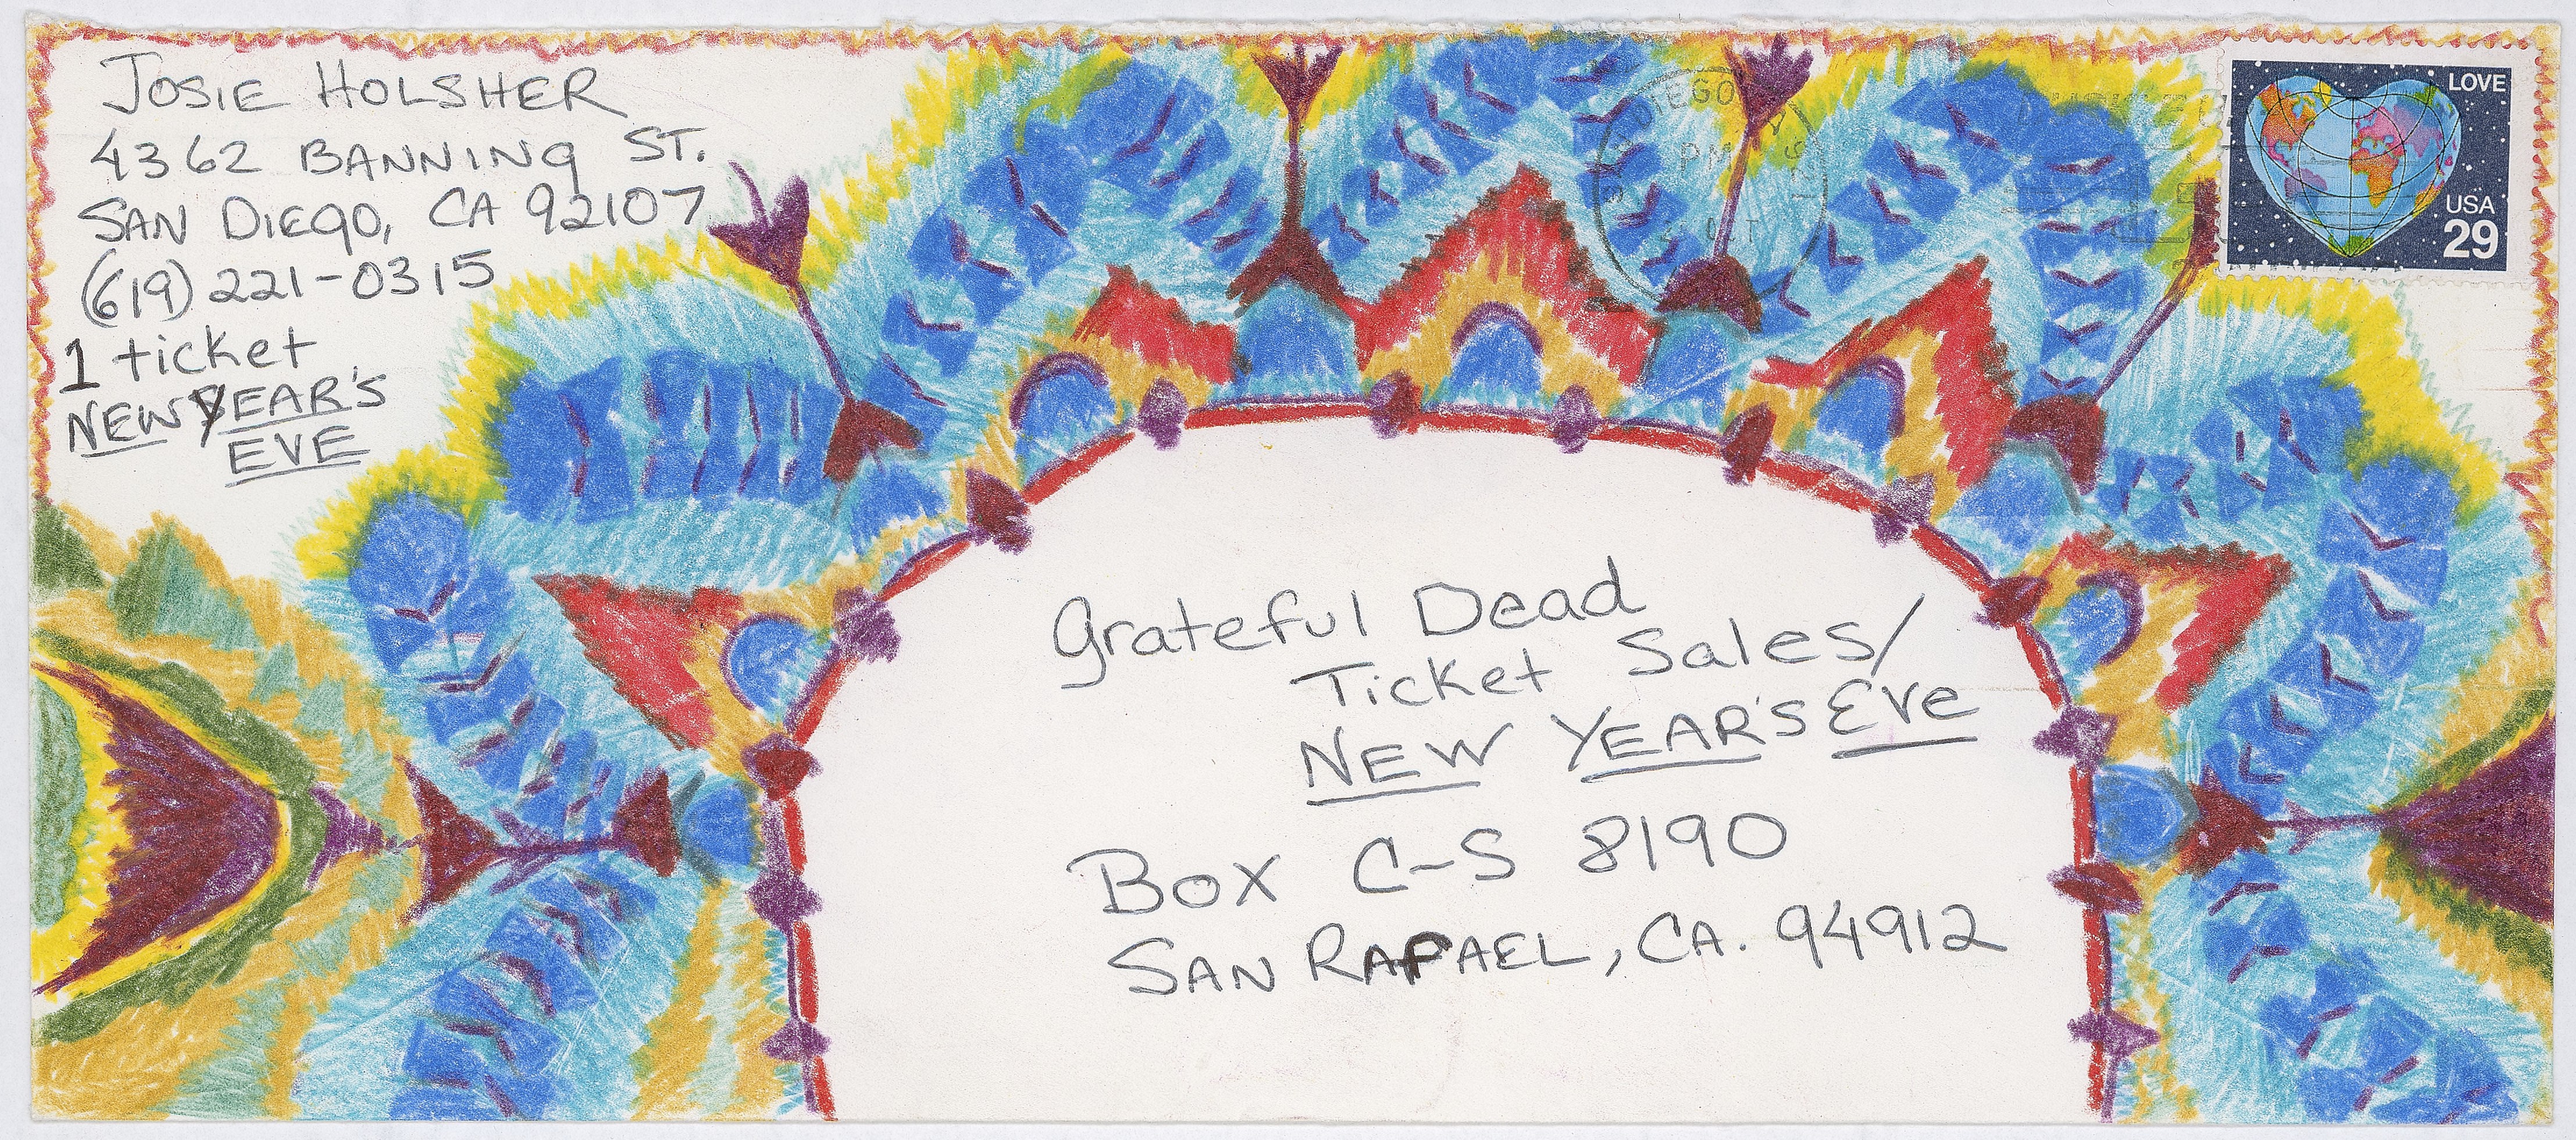 JOSIE HOLSHER
4362 BANNING ST.
SAN DIEGO, CA 92107
(619) 221-0315
1 ticket
NEW YEAR'S
EVE
LOVE
USA
29
SAN DIEGO
PM
OCT
Grateful Dead
Ticket Sales/
NEW YEAR'S Eve
Box C-S 8190
SAN RAFAEL, CA. 94912